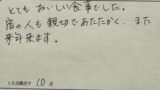 とてもおいしい食事でした。
店の人も親切であたたかく、また
来年来ます。
10点満点で 10 点